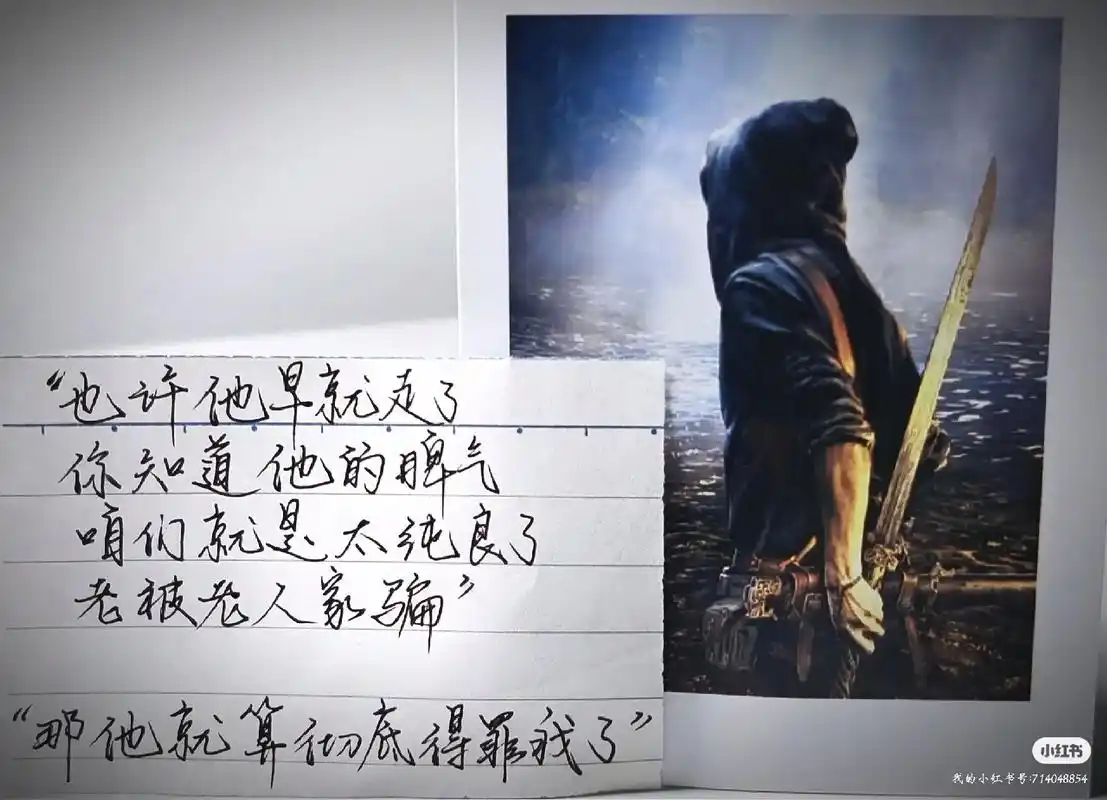 “也许他早就走了
你知道他的脾气
咱们就是太纯良了
老被老人家骗”
“那他就算彻底得罪我了”
小红书
我的小红书号:714048854